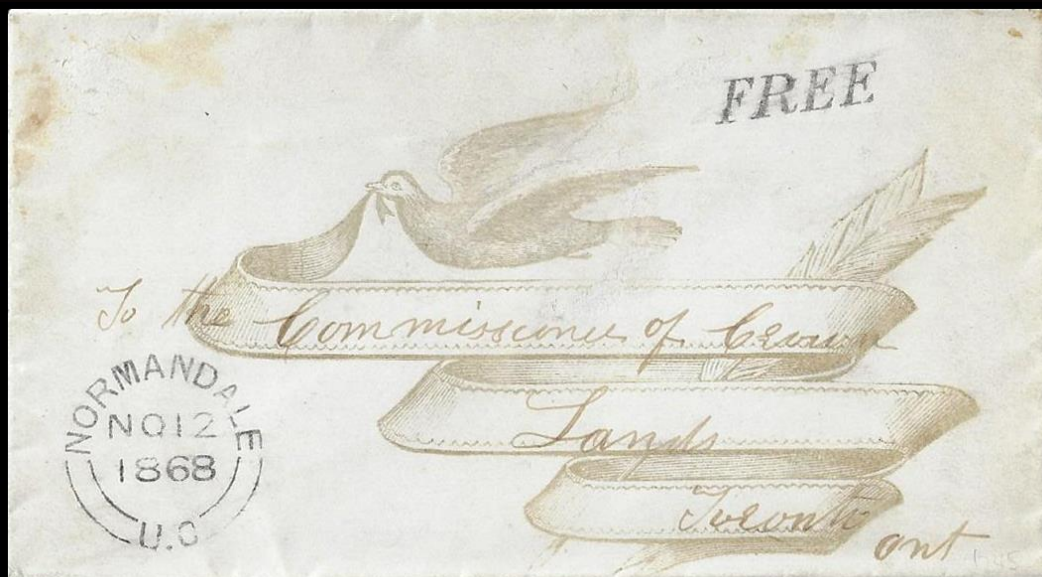 FREE
To the Commissioner of Crown
Lands
Toronto
ont
NORMANDALE
NO 12
1868
U.C